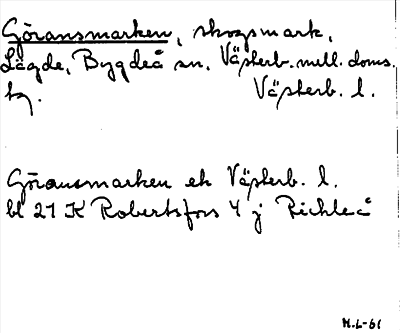 Göransmarken, skogsmark,
Lägde, Bygdeå sn. Västerb. mell. doms.
tg. Västerb. l.
Göransmarken ek Västerb. l.
bl 21 K Robertsfors 4 j Rickleå
H.L-61